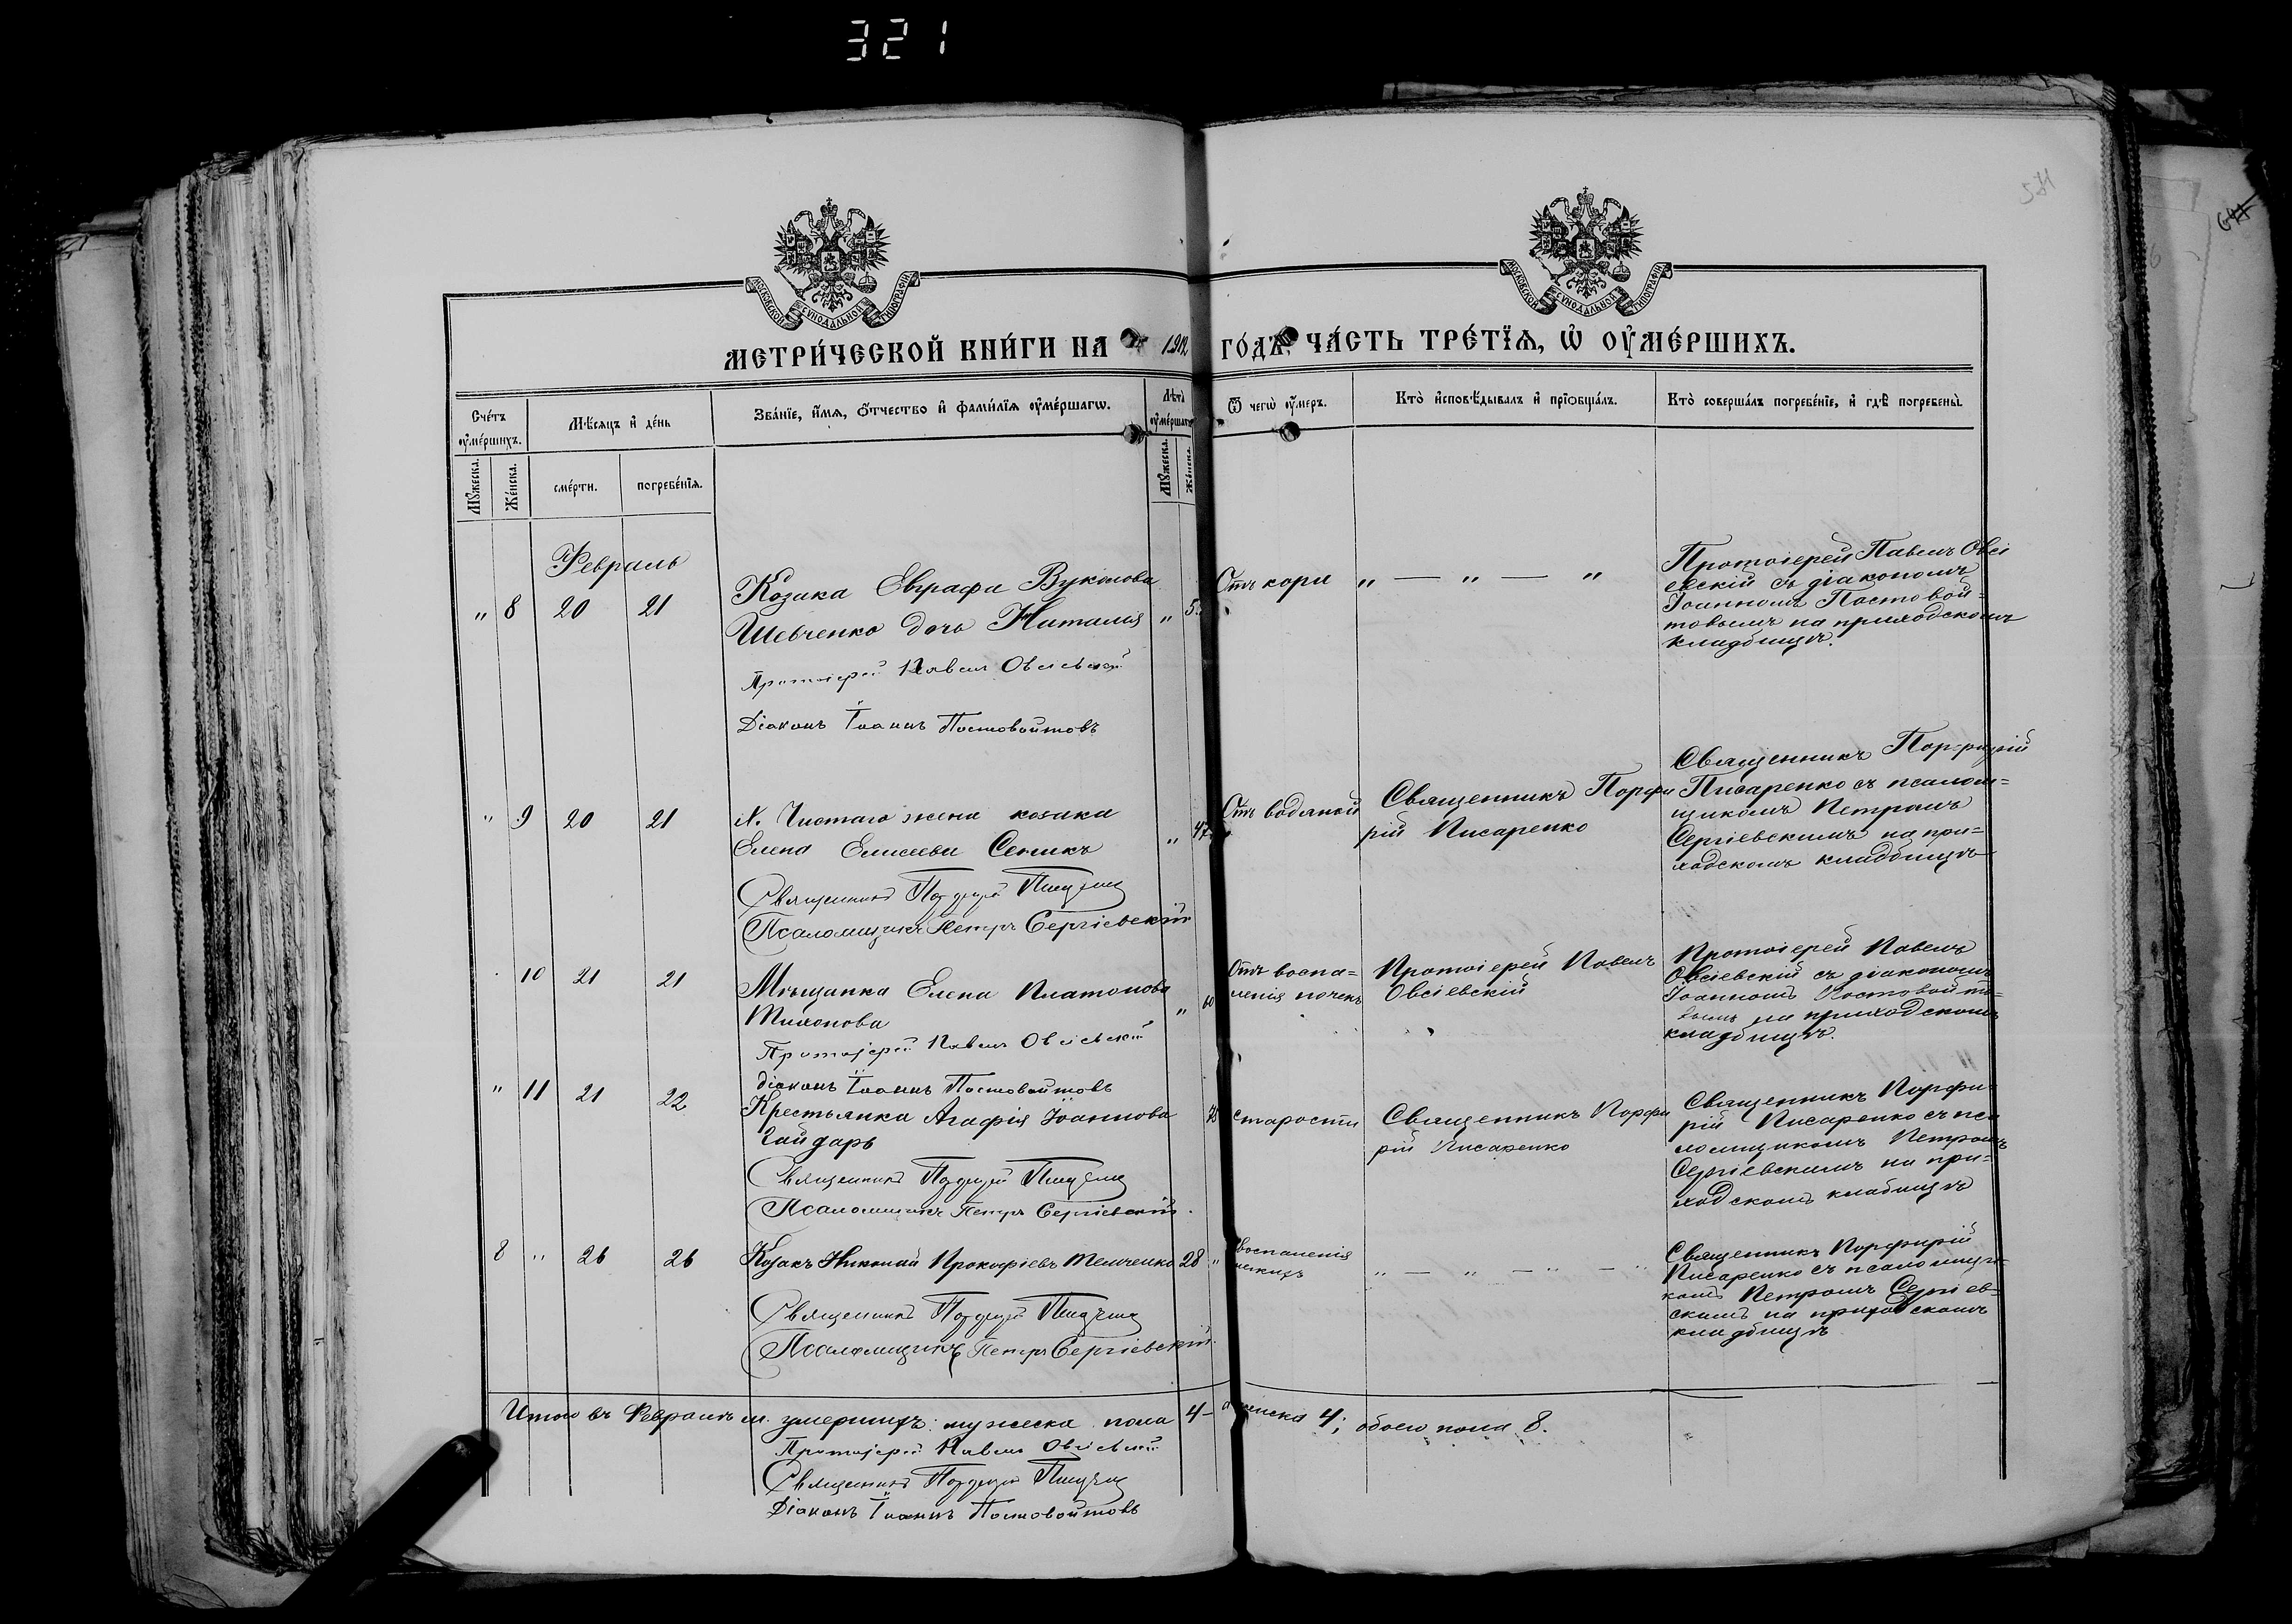 321
571
МОСКОВСКОЙ СѴНОДАЛЬНОЙ ТИПОГРАФІИ
МОСКОВСКОЙ СѴНОДАЛЬНОЙ ТИПОГРАФІИ
МЕТРИ́ЧЕСКОЙ КНИ́ГИ НА 1912 ГО́ДЪ ЧА́СТЬ ТРЕ́ТЇѦ, Ѡ҆ ОУ҆МЕ́РШИХЪ.
Сче́тъ оу҆ме́ршихъ.
Мꙋ́жеска.
Же́нска.
Мѣ́сяцъ и҆ де́нь
сме́рти.
погребе́нїѧ.
Зва́нїе, и҆́мѧ, ѻ҆́тчество и҆ фамі́лїѧ оу҆ме́ршагѡ.
Лѣ́та оу҆ме́ршагѡ
Мꙋ́жеска.
Же́нска.
Ѿ чегѡ̀ оу҆́меръ.
Кто̀ и҆сповѣ́дывалъ и҆ прїѻбща́лъ.
Кто̀ соверша́лъ погребе́нїе, и҆ гдѣ̀ погребены̀.
Февраль
" 8 20 21
Козака Евграфа Вуколова
Шевченко дочь Наталія " 5
Протоіерей Павелъ Овсіевскій
Діаконъ Іоаннъ Постовойтовъ
Отъ кори " — " — "
Протоіерей Павелъ Овсі
евскій съ діакономъ
Іоанномъ Постовой-
товымъ на приходскомъ
кладбищѣ.
" 9 20 21
Х. Чистаго жена козака
Елена Елисеева Сеникъ " 47
Священникъ Порфирій Писаренко
Псаломщикъ Петръ Сергіевскій
Отъ водяной
Священникъ Порфи
рій Писаренко
Священникъ Порфирій
Писаренко съ псалом-
щикомъ Петромъ
Сергіевскимъ на при-
ходскомъ кладбищѣ
10 21 21
Мѣщанка Елена Платонова
Тихонова " 60
Протоіерей Павелъ Овсіевскій
діаконъ Іоаннъ Постовойтовъ
Отъ воспа-
ленія почекъ
Протоіерей Павелъ
Овсіевскій
Протоіерей Павелъ
Овсіевскій съ діакономъ
Іоанномъ Постовойто-
вымъ на приходскомъ
кладбищѣ.
" 11 21 22
Крестьянка Агафія Іоаннова
Гайдарь
Священникъ Порфирій Писаренко
Псаломщикъ Петръ Сергіевскій.
старости
Священникъ Порфи
рій Писаренко
Священникъ Порфи-
рій Писаренко съ пса
ломщикомъ Петромъ
Сергіевскимъ на при-
ходскомъ кладбищѣ
8 " 26 26
Козакъ Николай Прокофіевъ Темченко 28 "
Священникъ Порфирій Писаренко
Псаломщикъ Петръ Сергіевскій.
воспаленія
легкихъ
" — " — " — "
Священникъ Порфирій
Писаренко съ псаломщи-
комъ Петромъ Сергіев-
скимъ на приходскомъ
кладбищѣ
Итого въ Февралѣ м. умершихъ: мужеска пола 4 – женска 4; обоего пола 8.
Протоіерей Павелъ Овсіевскій
Священникъ Порфирій Писаренко
Діаконъ Іоаннъ Постовойтовъ